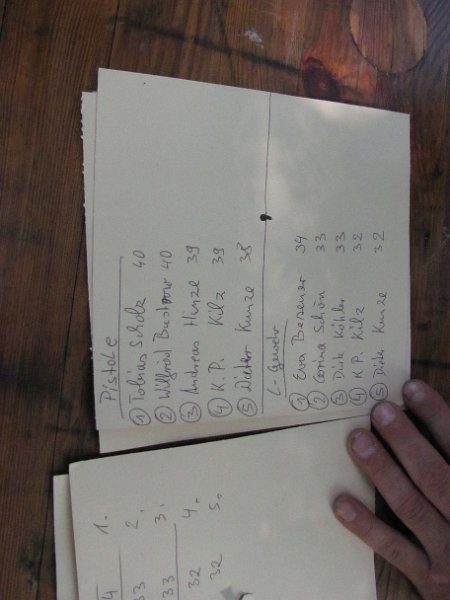 Pistole
① Tobias Scholz 40
② Wilfried 40
③ Andreas Hinze 39
④ K.P. Kilz 39
⑤ Dieter Kunze 38
L-Gewehr
① Eva 34
② Corina Schön 33
③ Dirk Köhler 33
④ K.P. Kilz 32
⑤ Dieter Kunze 32
4 1.
33 2.
33 3.
32 4.
32 5.